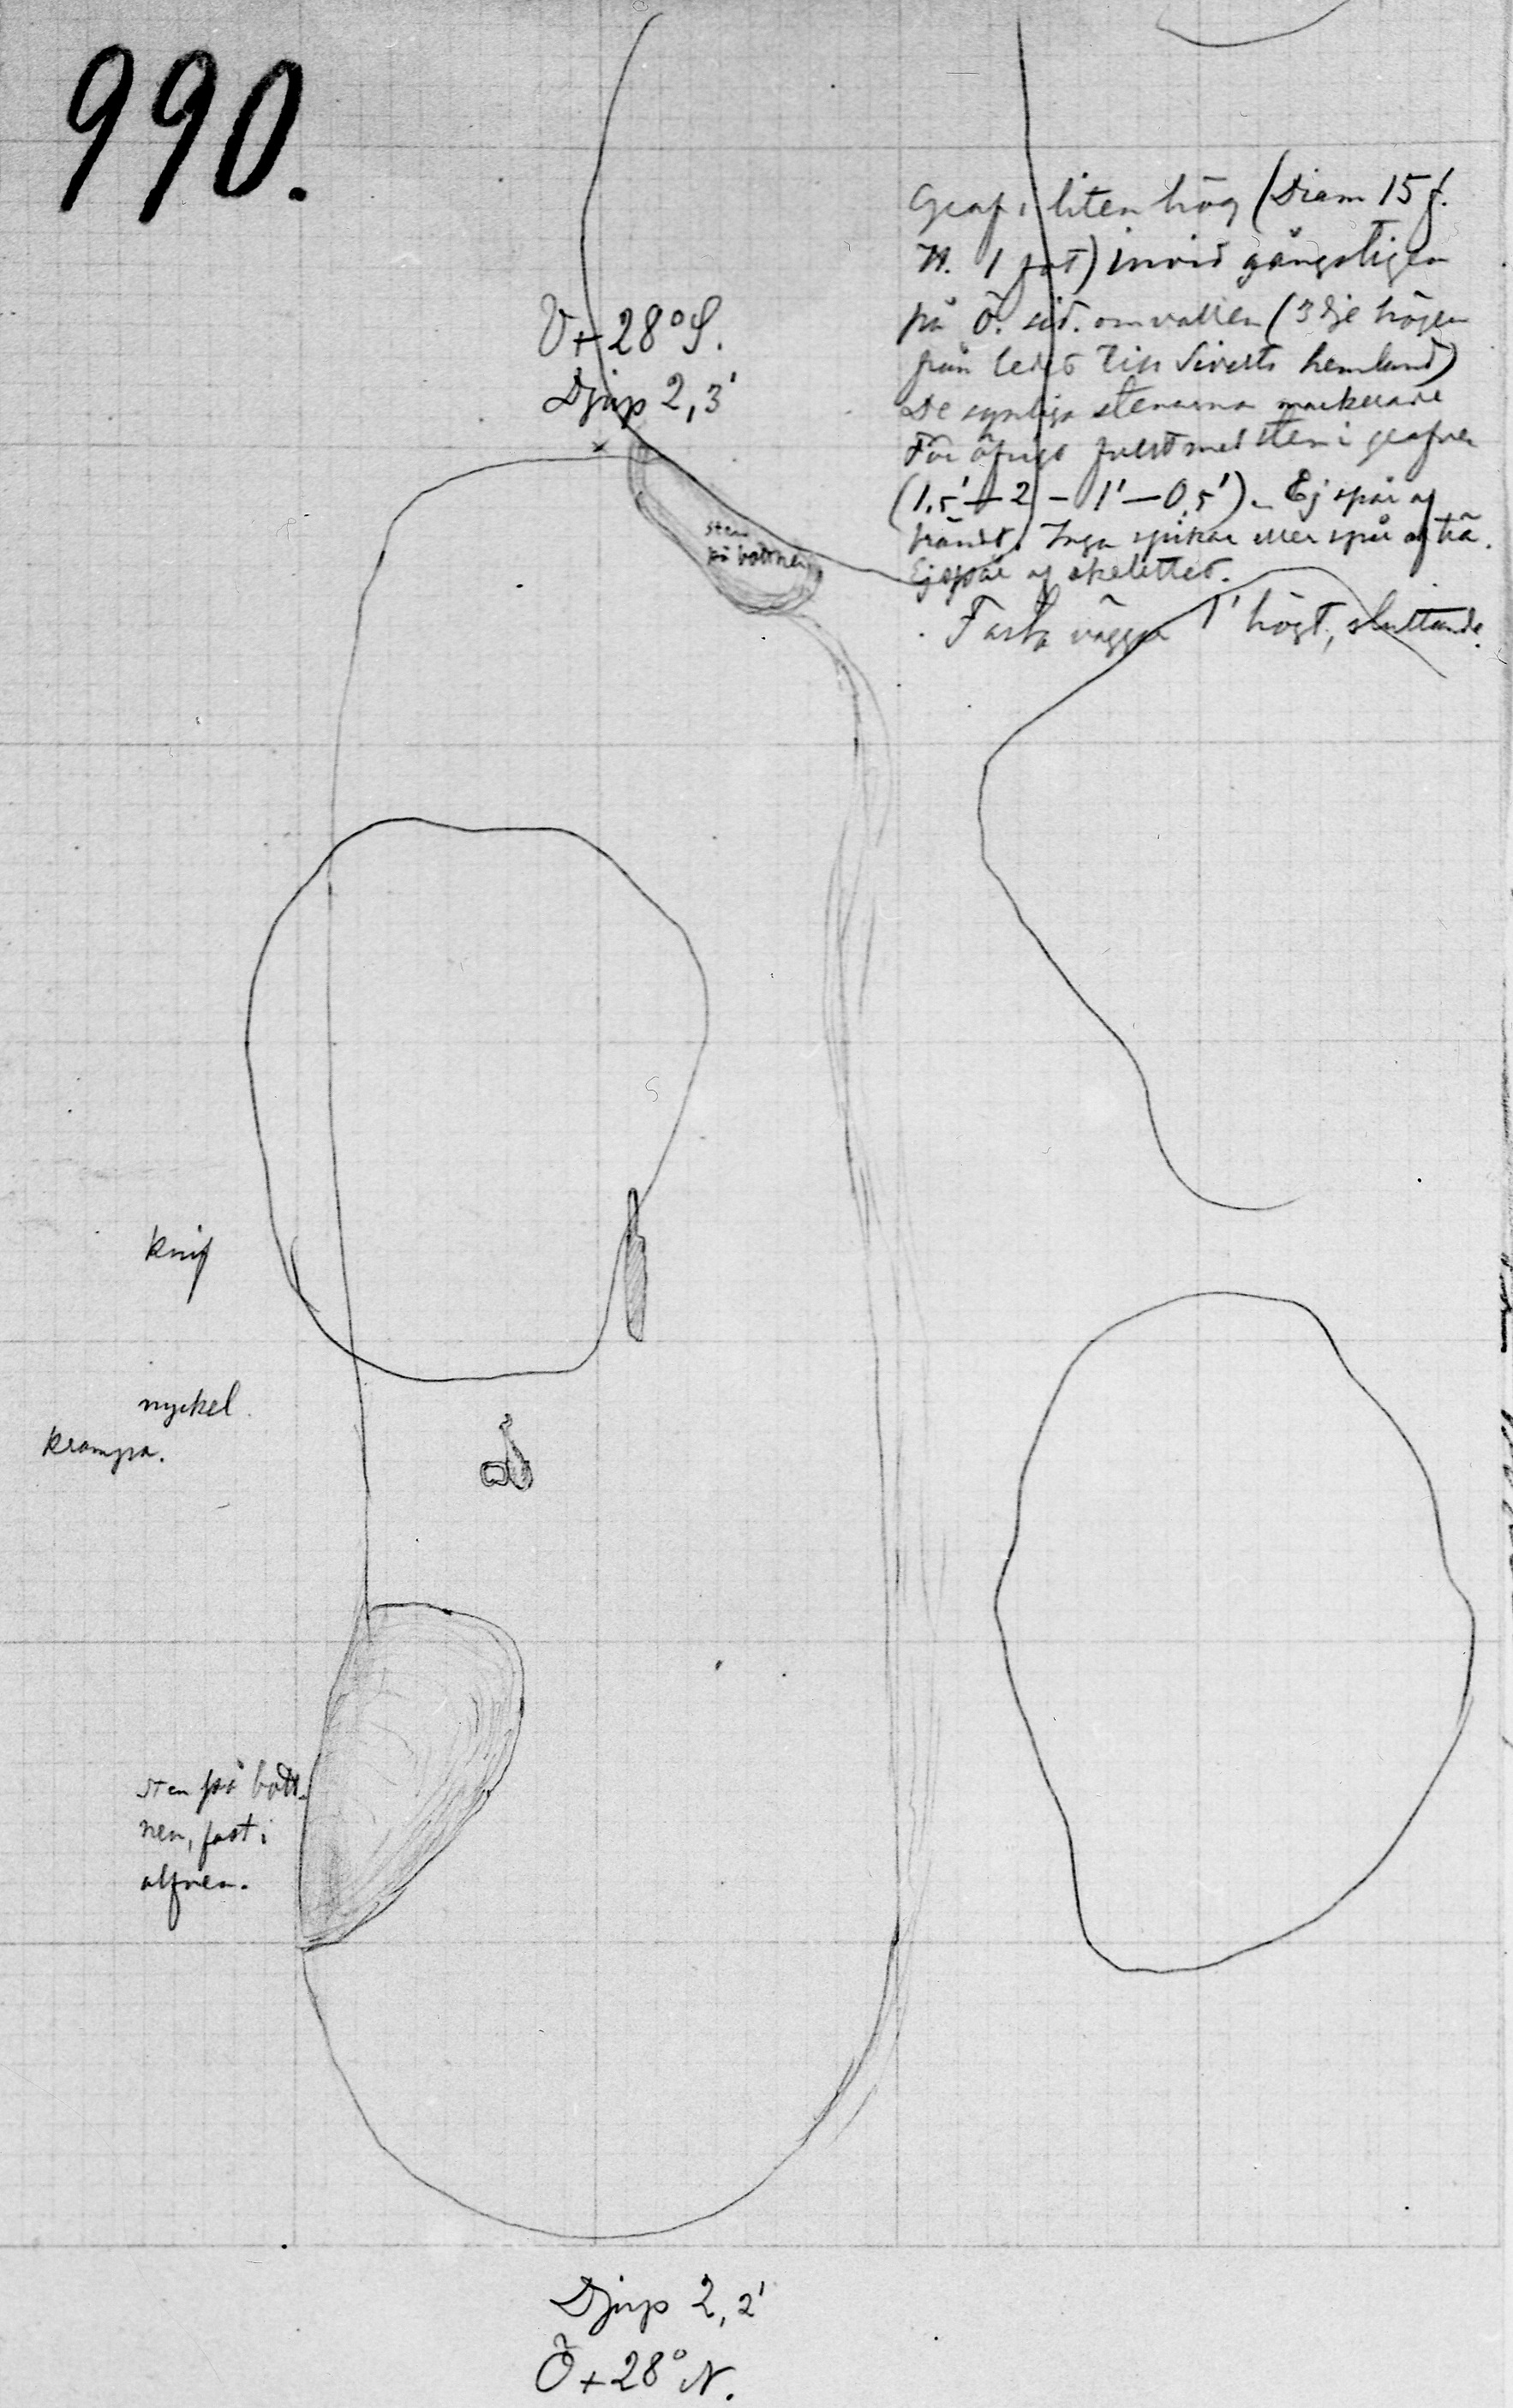 990.
V+28°S.
Djup 2,3'
Graf i liten hög (Diam 15 f.
H. 1 fot) invid gångstigen
på Ö. sid. om vallen (3dje högen
från ledet till Siverts hemland)
De synliga stenarna markerade
För öfrigt fylldt med sten i grafven
(1,5'–2'–1'–0,5'). Ej spår af
brändt. Inga spikar eller spår af trä.
Ej spår af skelettet.
Fasta väggar 1' högt, sluttande.
sten
på bottnen
knif
nyckel
krampa.
sten på bott-
nen, fast i
alfven.
Djup 2,2'
Ö+28°N.